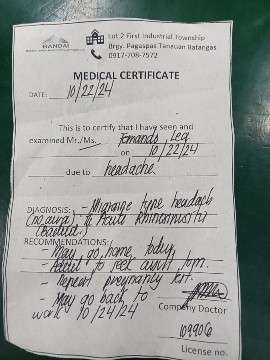 HANDAI
Lot 2 First Industrial Township
Brgy. Pagaspas Tanauan Batangas
0917-708-7572
MEDICAL CERTIFICATE
DATE: 10/22/24
This is to certify that I have seen and
examined Mr./Ms. Fernando, Lea
on 10/22/24
due to headache
DIAGNOSIS: - Migraine type headache
(no aura); Acute Rhinosinusitis
RECOMMENDATIONS:
- May go home today.
- to seek
- Repeat pregnancy test.
- May go back to
work 10/24/24
Company Doctor
109906
License no.